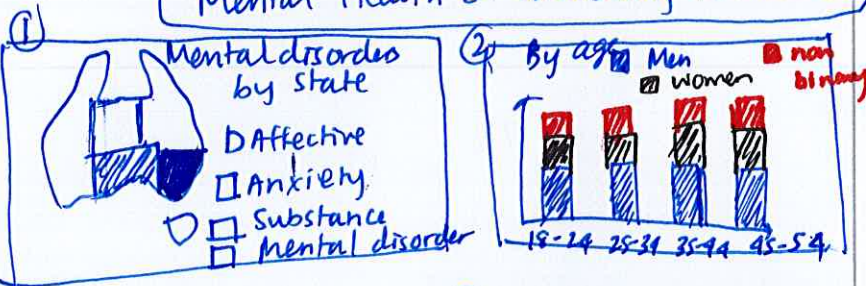 Mental Health
①
Mental disorders
by state
Affective
Anxiety
Substance
Mental disorder
②
By age Men
women
non
binary
18-24 25-34 35-44 45-54